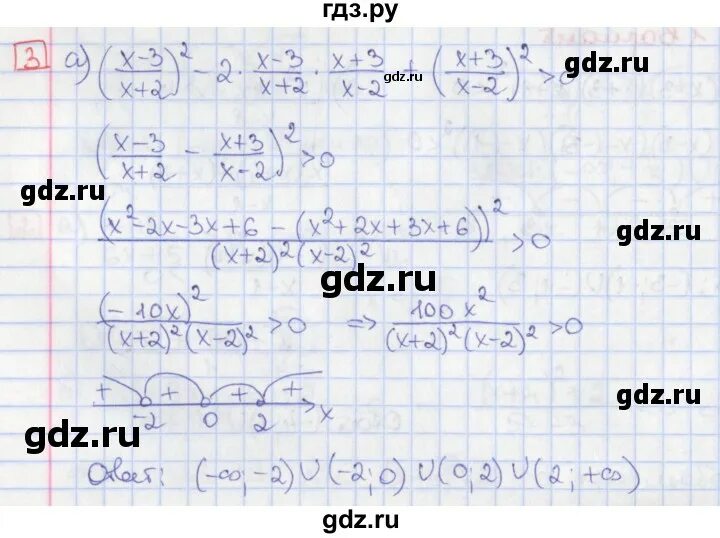 гдз.ру
3 а) ((x-3)/(x+2))² - 2 · (x-3)/(x+2) · (x+3)/(x-2) + ((x+3)/(x-2))² > 0
gdz.ru gdz.ru
((x-3)/(x+2) - (x+3)/(x-2))² > 0
gdz.ru
(x²-2x-3x+6 - (x²+2x+3x+6))² / (x+2)²(x-2)² > 0
gdz.ru
gdz.ru
(-10x)² / (x+2)²(x-2)² > 0 => 100x² / (x+2)²(x-2)² > 0
+ + + +
gdz.ru
-2 0 2 x
gdz.ru
Ответ: (-∞; -2) ∪ (-2; 0) ∪ (0; 2) ∪ (2; +∞)
gdz.ru